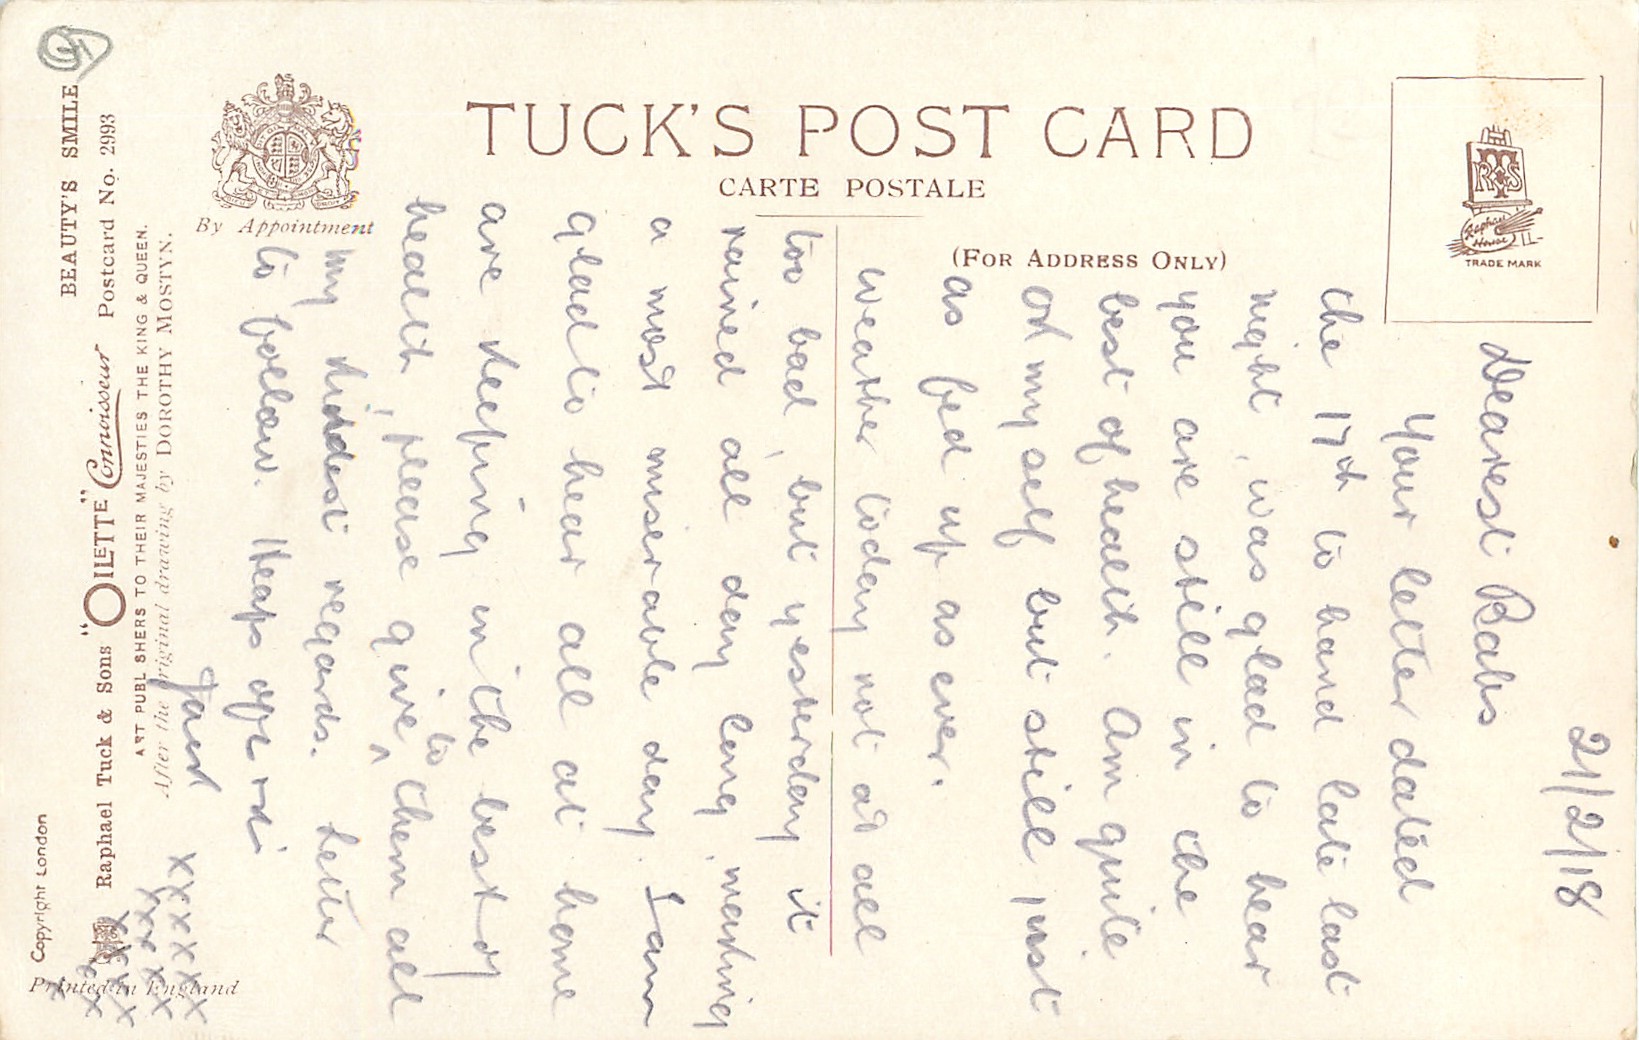 TUCK'S POST CARD
CARTE POSTALE
(FOR ADDRESS ONLY)
By Appointment
TRADE MARK
BEAUTY'S SMILE
Raphael Tuck & Sons "OILETTE" Connoisseur Postcard No. 2993
ART PUBLISHERS TO THEIR MAJESTIES THE KING & QUEEN.
After the original drawing by DOROTHY MOSTYN.
Copyright London
Printed in England
21/2/18
Dearest Babs
Your letter dated
the 17th to hand late last
night, was glad to hear
you are still in the
best of health. Am quite
OK my self but still just
as fed up as ever.
Weather today not at all
too bad, but yesterday it
rained all day long, making
a most miserable day. I am
glad to hear all at home
are keeping in the best of
health, please give to them all
my kindest regards. Letter
to follow. Heaps of
Jack
x x x x x
x x x x
x x x x
x x